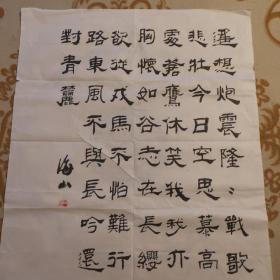 遥想炮震隆〻戰歌
悲壯今日空思慕高
處蒼鷹休笑我我亦
胸懷如谷志在長纓
欲從戎馬不怕難行
路東風不與長吟還
對青
海山